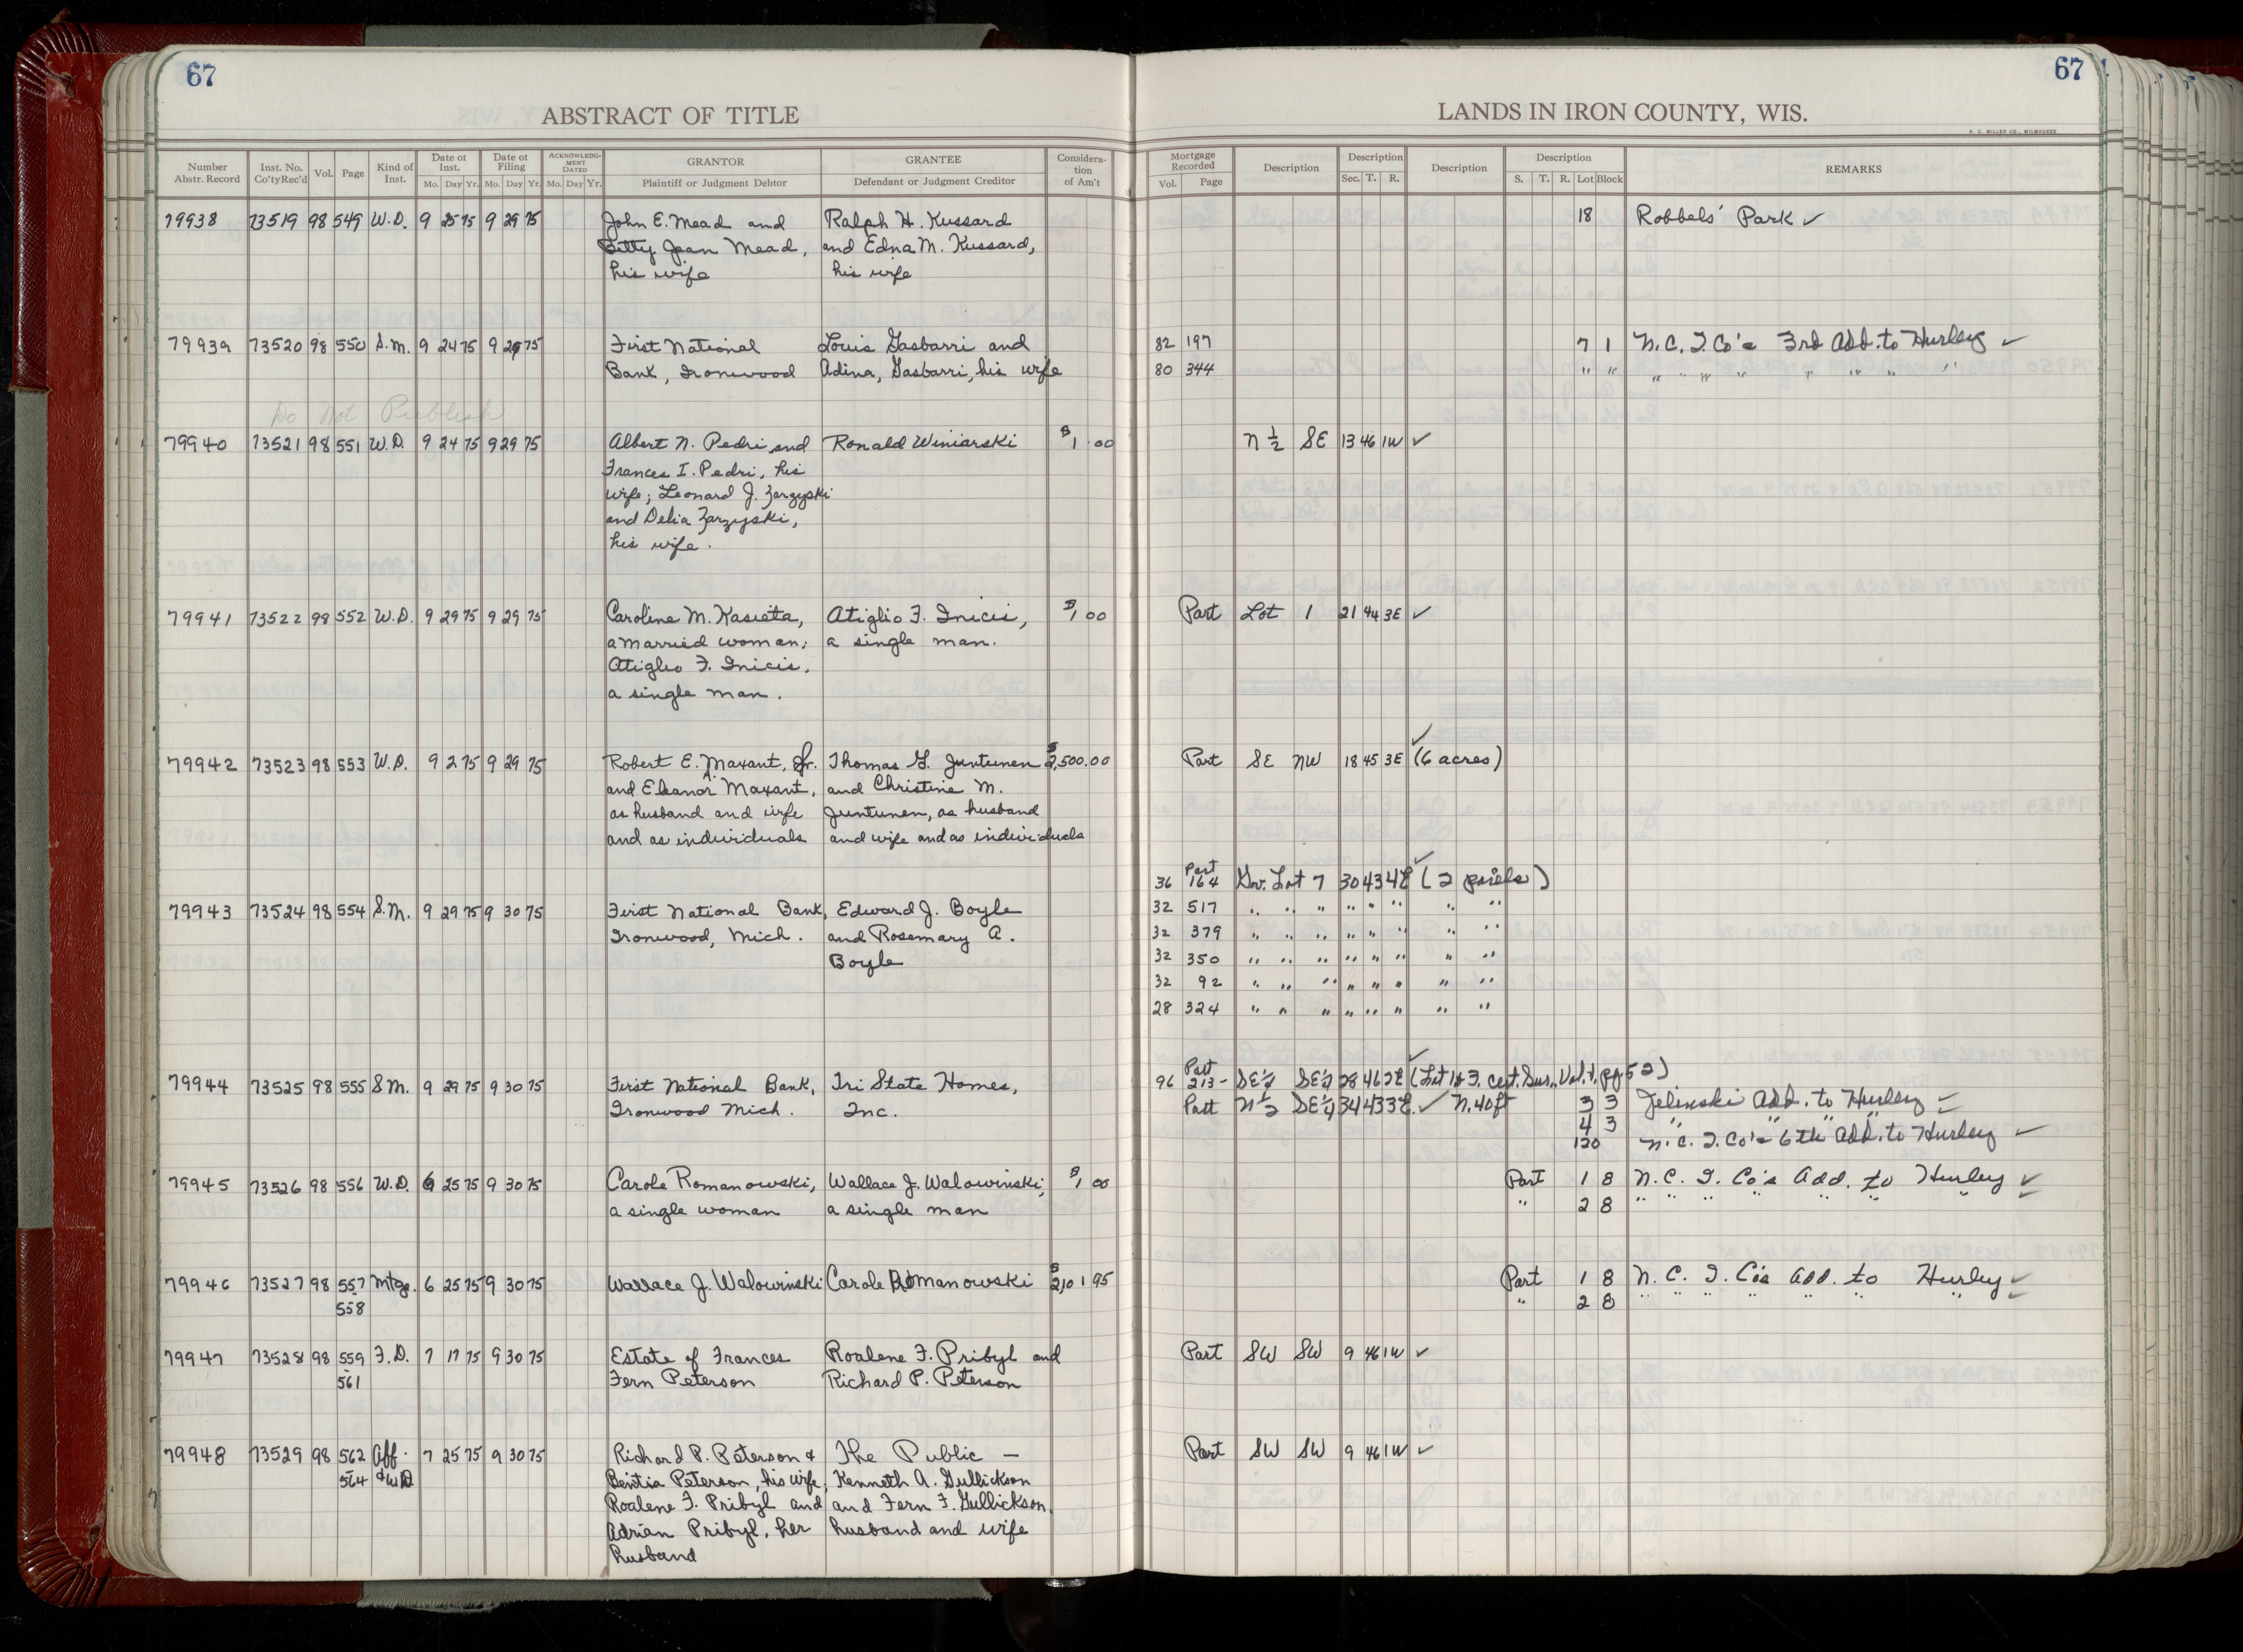 67
67
ABSTRACT OF TITLE
LANDS IN IRON COUNTY, WIS.
H. C. MILLER CO., MILWAUKEE
Number Abstr. Record Inst. No. Co'tyRec'd Vol. Page Kind of Inst. Date of Inst. Mo. Day Yr. Date of Filing Mo. Day Yr. ACKNOWLEDGMENT DATED Mo. Day Yr. GRANTOR Plaintiff or Judgment Debtor GRANTEE Defendant or Judgment Creditor Consideration of Am't Mortgage Recorded Vol. Page Description Description Sec. T. R. Description Description S. T. R. Lot Block REMARKS
79938 73519 98 549 W.D. 9 25 75 9 29 75 John E. Mead and Ralph H. Kussard 18 Robbels' Park ✓
Betty Jean Mead, and Edna M. Kussard,
his wife his wife
79939 73520 98 550 S.M. 9 24 75 9 29 75 First National Louis Gasbarri and 82 197 7 1 N.C.I. Co's 3rd Add. to Hurley ✓
Bank, Ironwood Adina, Gasbarri, his wife 80 344 " " " " " " " " " "
Do Not Publish
79940 73521 98 551 W.D. 9 24 75 9 29 75 Albert N. Pedri and Ronald Winiarski $1.00 N ½ SE 13 46 1W ✓
Frances I. Pedri, his
wife; Leonard J. Zarzyski
and Delia Zarzyski,
his wife.
79941 73522 98 552 W.D. 9 29 75 9 29 75 Caroline M. Kasieta, Atiglio F. Inicis, $1.00 Part Lot 1 21 44 3E ✓
a married woman; a single man.
Atiglio F. Inicis,
a single man.
79942 73523 98 553 W.D. 9 2 75 9 29 75 Robert E. Maxant, Jr. Thomas G. Juntunen $2,500.00 Part SE NW 18 45 3E ✓ (6 acres)
and Eleanor A. Maxant, and Christine M.
as husband and wife Juntunen, as husband
and as individuals and wife and as individuals
Part
36 164 Gov. Lot 7 30 43 4E ✓ (2 parcels)
79943 73524 98 554 S.M. 9 29 75 9 30 75 First National Bank, Edward J. Boyle 32 517 " " " " " " " "
Ironwood, Mich. and Rosemary A. 32 379 " " " " " " " "
Boyle 32 350 " " " " " " " "
32 92 " " " " " " " "
28 324 " " " " " " " "
Part ✓
79944 73525 98 555 S.M. 9 29 75 9 30 75 First National Bank, Tri State Homes, 96 213- SE¼ SE¼ 28 46 2E (Lot 1 & 3, cert. Sur., Vol. 1, pg. 52)
Ironwood Mich. Inc. Part N½ SE¼ 34 43 3E. ✓ N. 40 ft 3 3 Jelinski Add. to Hurley ✓
4 3 " " " " ✓
120 N.C.I. Co's 6th Add. to Hurley ✓
79945 73526 98 556 W.D. 6 25 75 9 30 75 Carole Romanowski, Wallace J. Walowinski, $1.00 Part 1 8 N.C.I. Co's Add. to Hurley ✓
a single woman a single man " 2 8 " " " " " " " ✓
79946 73527 98 557 Mtge. 6 25 75 9 30 75 Wallace J. Walowinski Carole Romanowski $2,101.95 Part 1 8 N.C.I. Co's Add. to Hurley ✓
558 " 2 8 " " " " " " " ✓
79947 73528 98 559 F.D. 7 17 75 9 30 75 Estate of Frances Roalene F. Pribyl and Part SW SW 9 46 1W ✓
- 561 Fern Peterson Richard P. Peterson
79948 73529 98 562 Aff. 7 25 75 9 30 75 Richard P. Peterson & The Public — Part SW SW 9 46 1W ✓
- 564 & WD Bentia Peterson, his wife, Kenneth A. Gullickson
Roalene F. Pribyl and and Fern F. Gullickson,
Adrian Pribyl, her husband and wife
husband